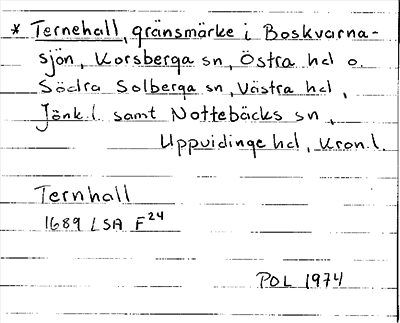 * Ternehall, gränsmärke i Boskvarna-
sjön, Korsberga sn, Östra hd o.
Södra Solberga sn, Västra hd,
Jönk.l. samt Nottebäcks sn,
Uppvidinge hd, Kron.l.
Ternhall
1689 LSA F24
POL 1974